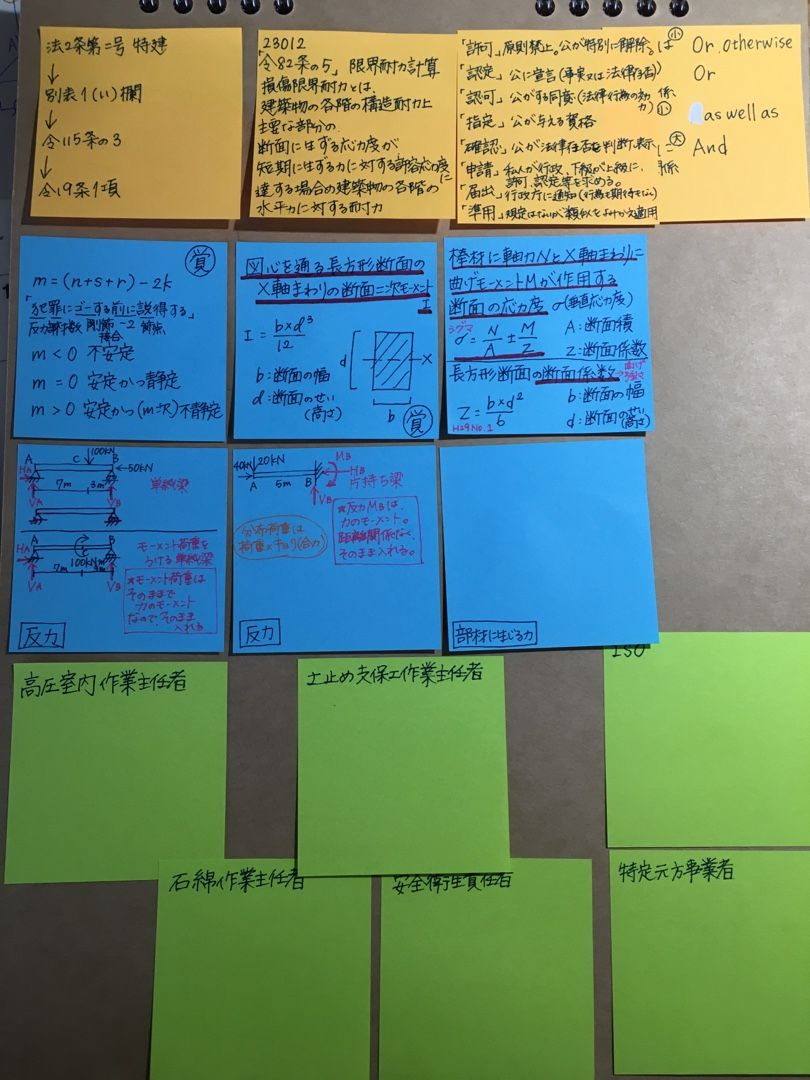 法2条第二号 特建
↓
別表1(い)欄
↓
令115条の3
↓
令19条1項
23012
「令82条の5」限界耐力計算
損傷限界耐力とは、
建築物の各階の構造耐力上
主要な部分の、
断面に生ずる応力度が
短期に生ずる力に対する許容応力度に
達する場合の建築物の各階の
水平力に対する耐力
「許可」原則禁止。公が特別に解除。
「認定」公に宣言(事実又は法律
「認可」公がする同意(法律行為の効力)
「指定」公が与える資格
「確認」公が法律
を判断、表示
「申請」私人が行政、下級が上級に、
許可、認定等を求める。
「届出」行政庁に通知(行為も期待もない)
「準用」規定はないが類似をよみかえ適用
小 Or, otherwise
は Or
係
小 as well as
大 And
に
係
覚
m = (n+s+r) - 2k
「犯罪にゴーする前に説得する」
反力 部材数 剛節接合 -2 節点
m < 0 不安定
m = 0 安定かつ静定
m > 0 安定かつ(m次)不静定
図心を通る長方形断面の
X軸まわりの断面二次モーメント
I
I = b×d³/12
d X
b
b:断面の幅
d:断面のせい
(高さ)
覚
棒材に軸力NとX軸まわりに
曲げモーメントMが作用する
断面の応力度 σ(垂直応力度)
シグマ
σ = N/A ± M/Z
A:断面積
Z:断面係数
長方形断面の断面係数→曲げ強さ
Z = b×d²/6
b:断面の幅
d:断面のせい(高さ)
H29 No.1
100kN
A C B
HA ←50kN
7m 3m 単純梁
VA VB
HA モーメント荷重を
うける単純梁
100kNm
7m
VA VB
*モーメント荷重は
そのままで
力のモーメント
なので、そのまま
入れる
反力
40kN 20kN
MB
HB
A 5m B 片持ち梁
VB
分布荷重は
荷重×キョリ(合力)
*反力MBは、
力のモーメント。
距離関係なく、
そのまま入れる。
反力
部材に生じる力
高圧室内作業主任者
土止め支保工作業主任者
ISO
石綿作業主任者
安全衛生責任者
特定元方事業者